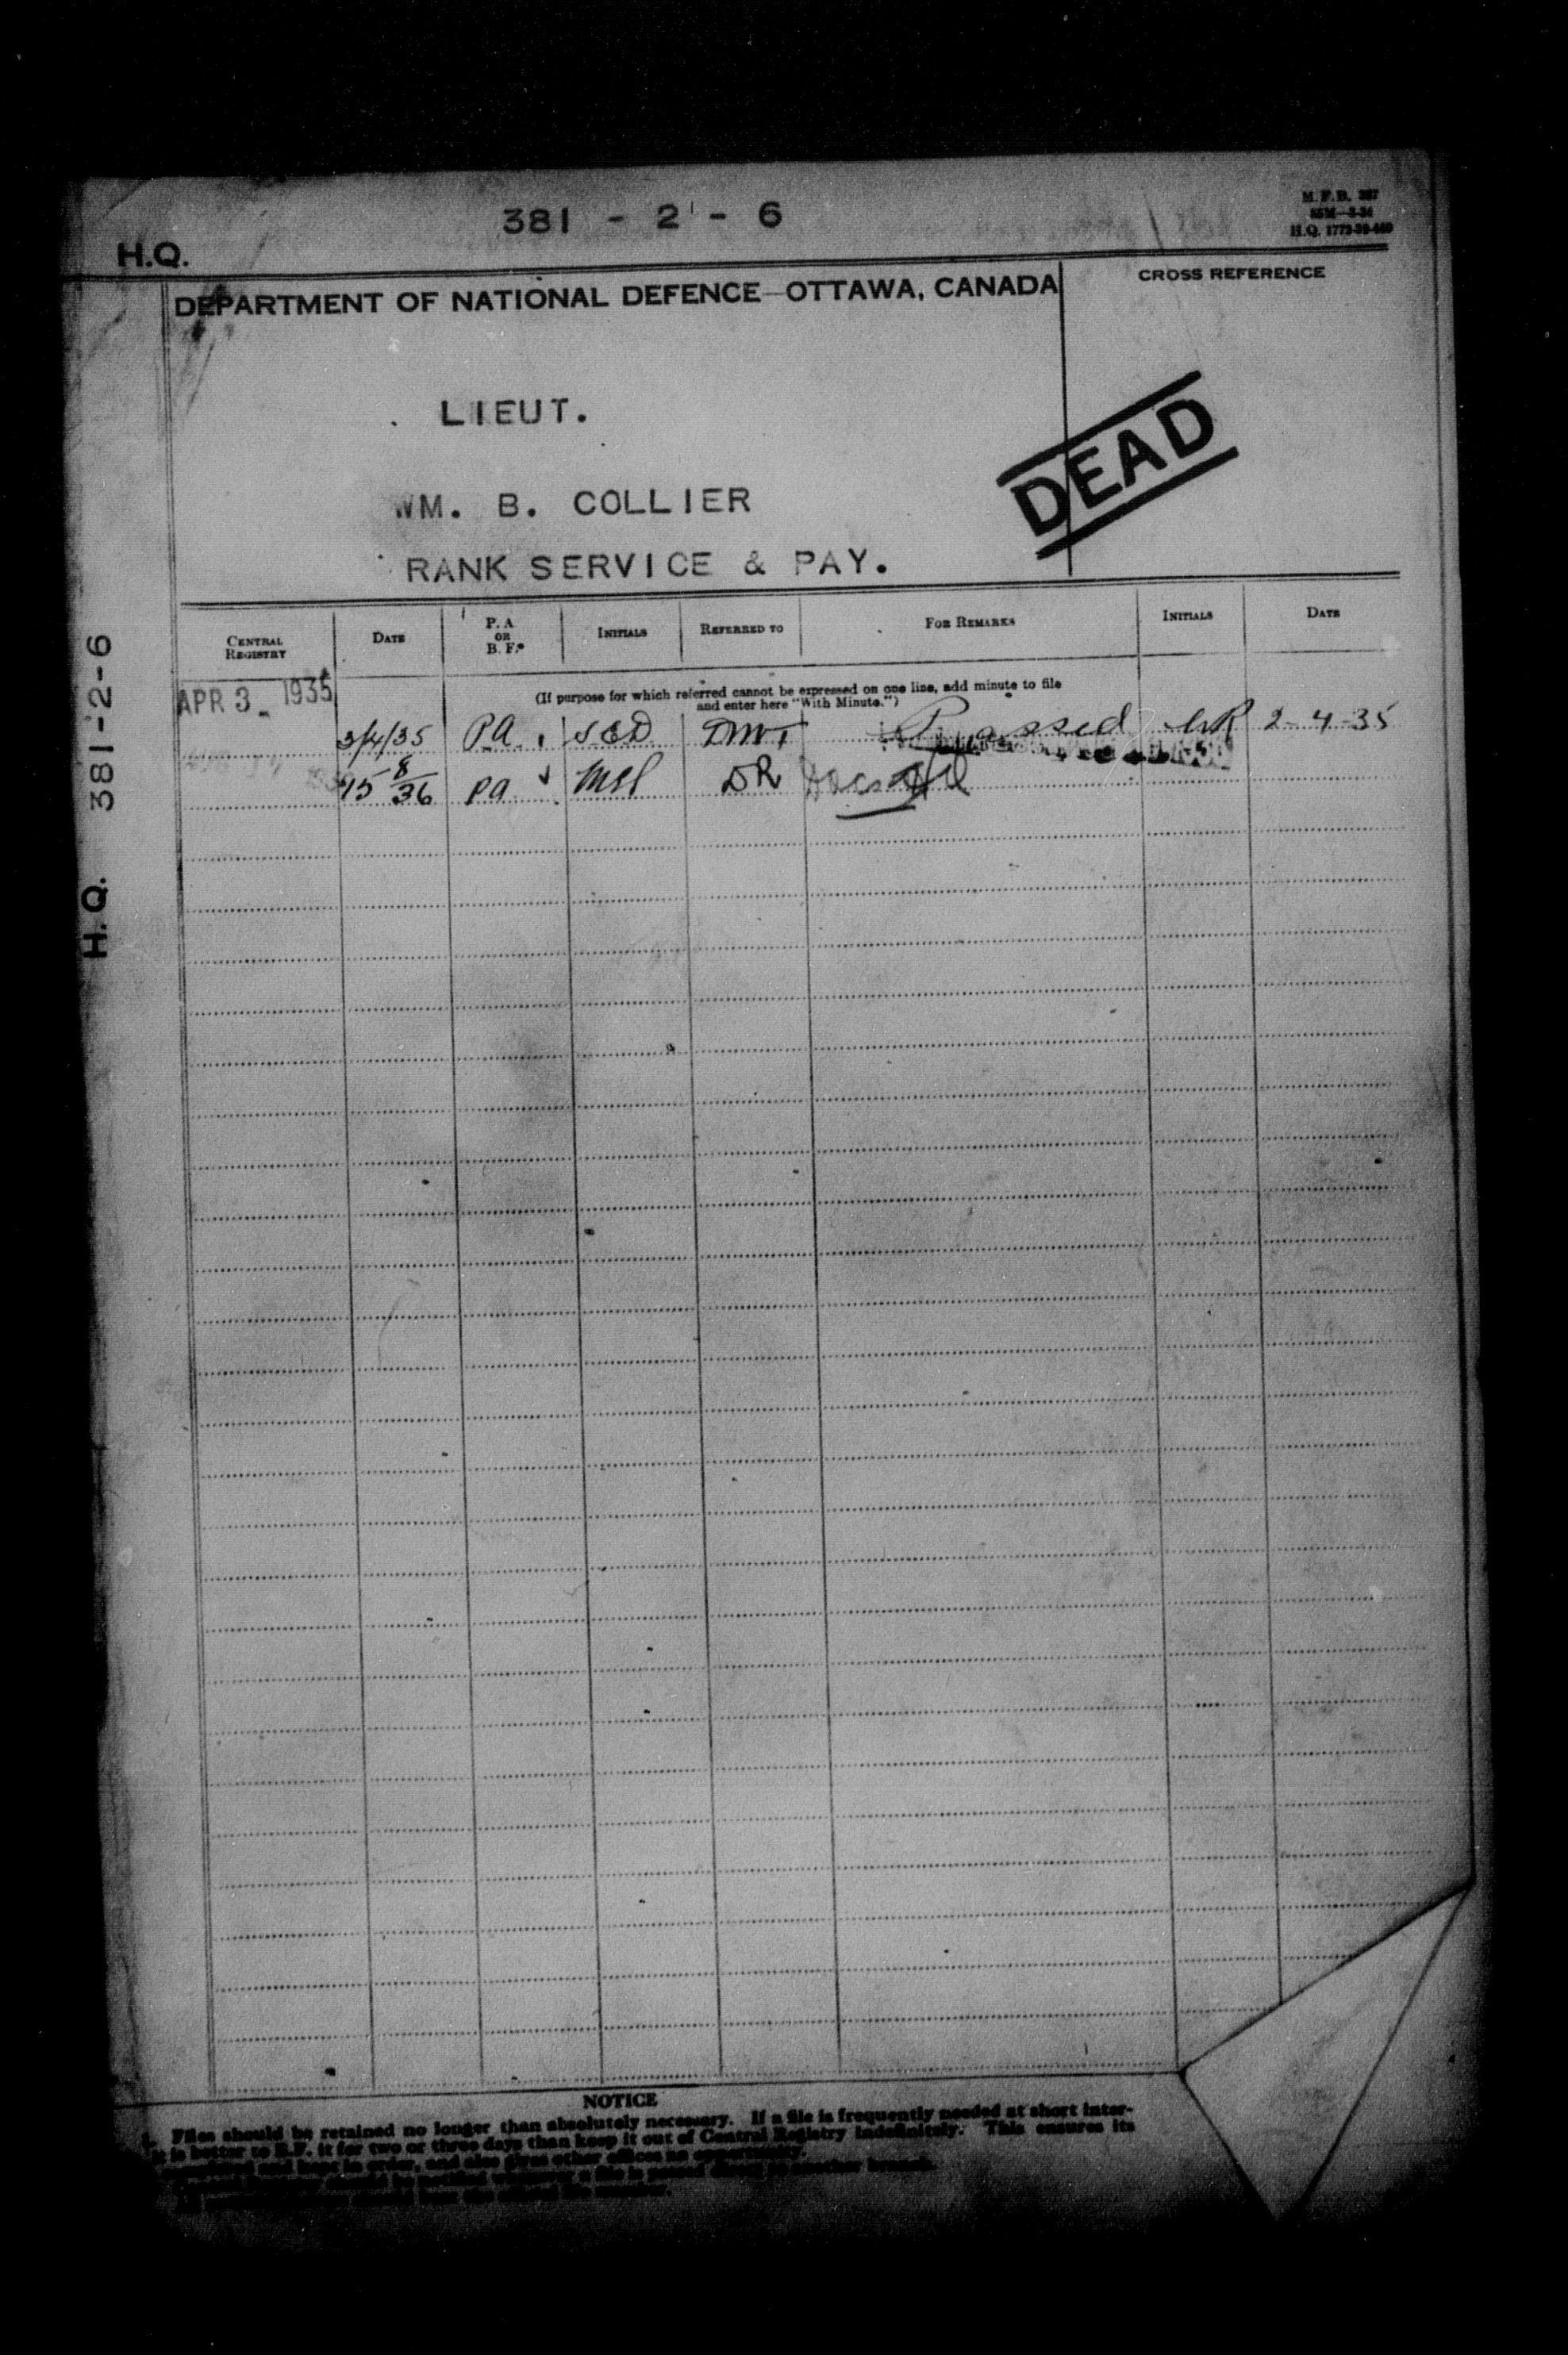 381 - 2 - 6
M. F. B. 387
H.Q. 1772-39-449
H.Q.
DEPARTMENT OF NATIONAL DEFENCE—OTTAWA, CANADA
CROSS REFERENCE
LIEUT.
WM. B. COLLIER
RANK SERVICE & PAY.
DEAD
H.Q. 381-2-6
CENTRAL REGISTRY
DATE
P. A. OR B. F.*
INITIALS
REFERRED TO
FOR REMARKS
INITIALS
DATE
APR 3 1935
(If purpose for which referred cannot be expressed on one line, add minute to file
and enter here "With Minute.")
3/4/35 PA Passed 2-4-35
15 8/36 PA DR
NOTICE
1. Files should be retained no longer than absolutely necessary. If a file is frequently needed at short inter-
it is better to B.F. it for two or three days than keep it out of Central Registry indefinitely. This ensures its